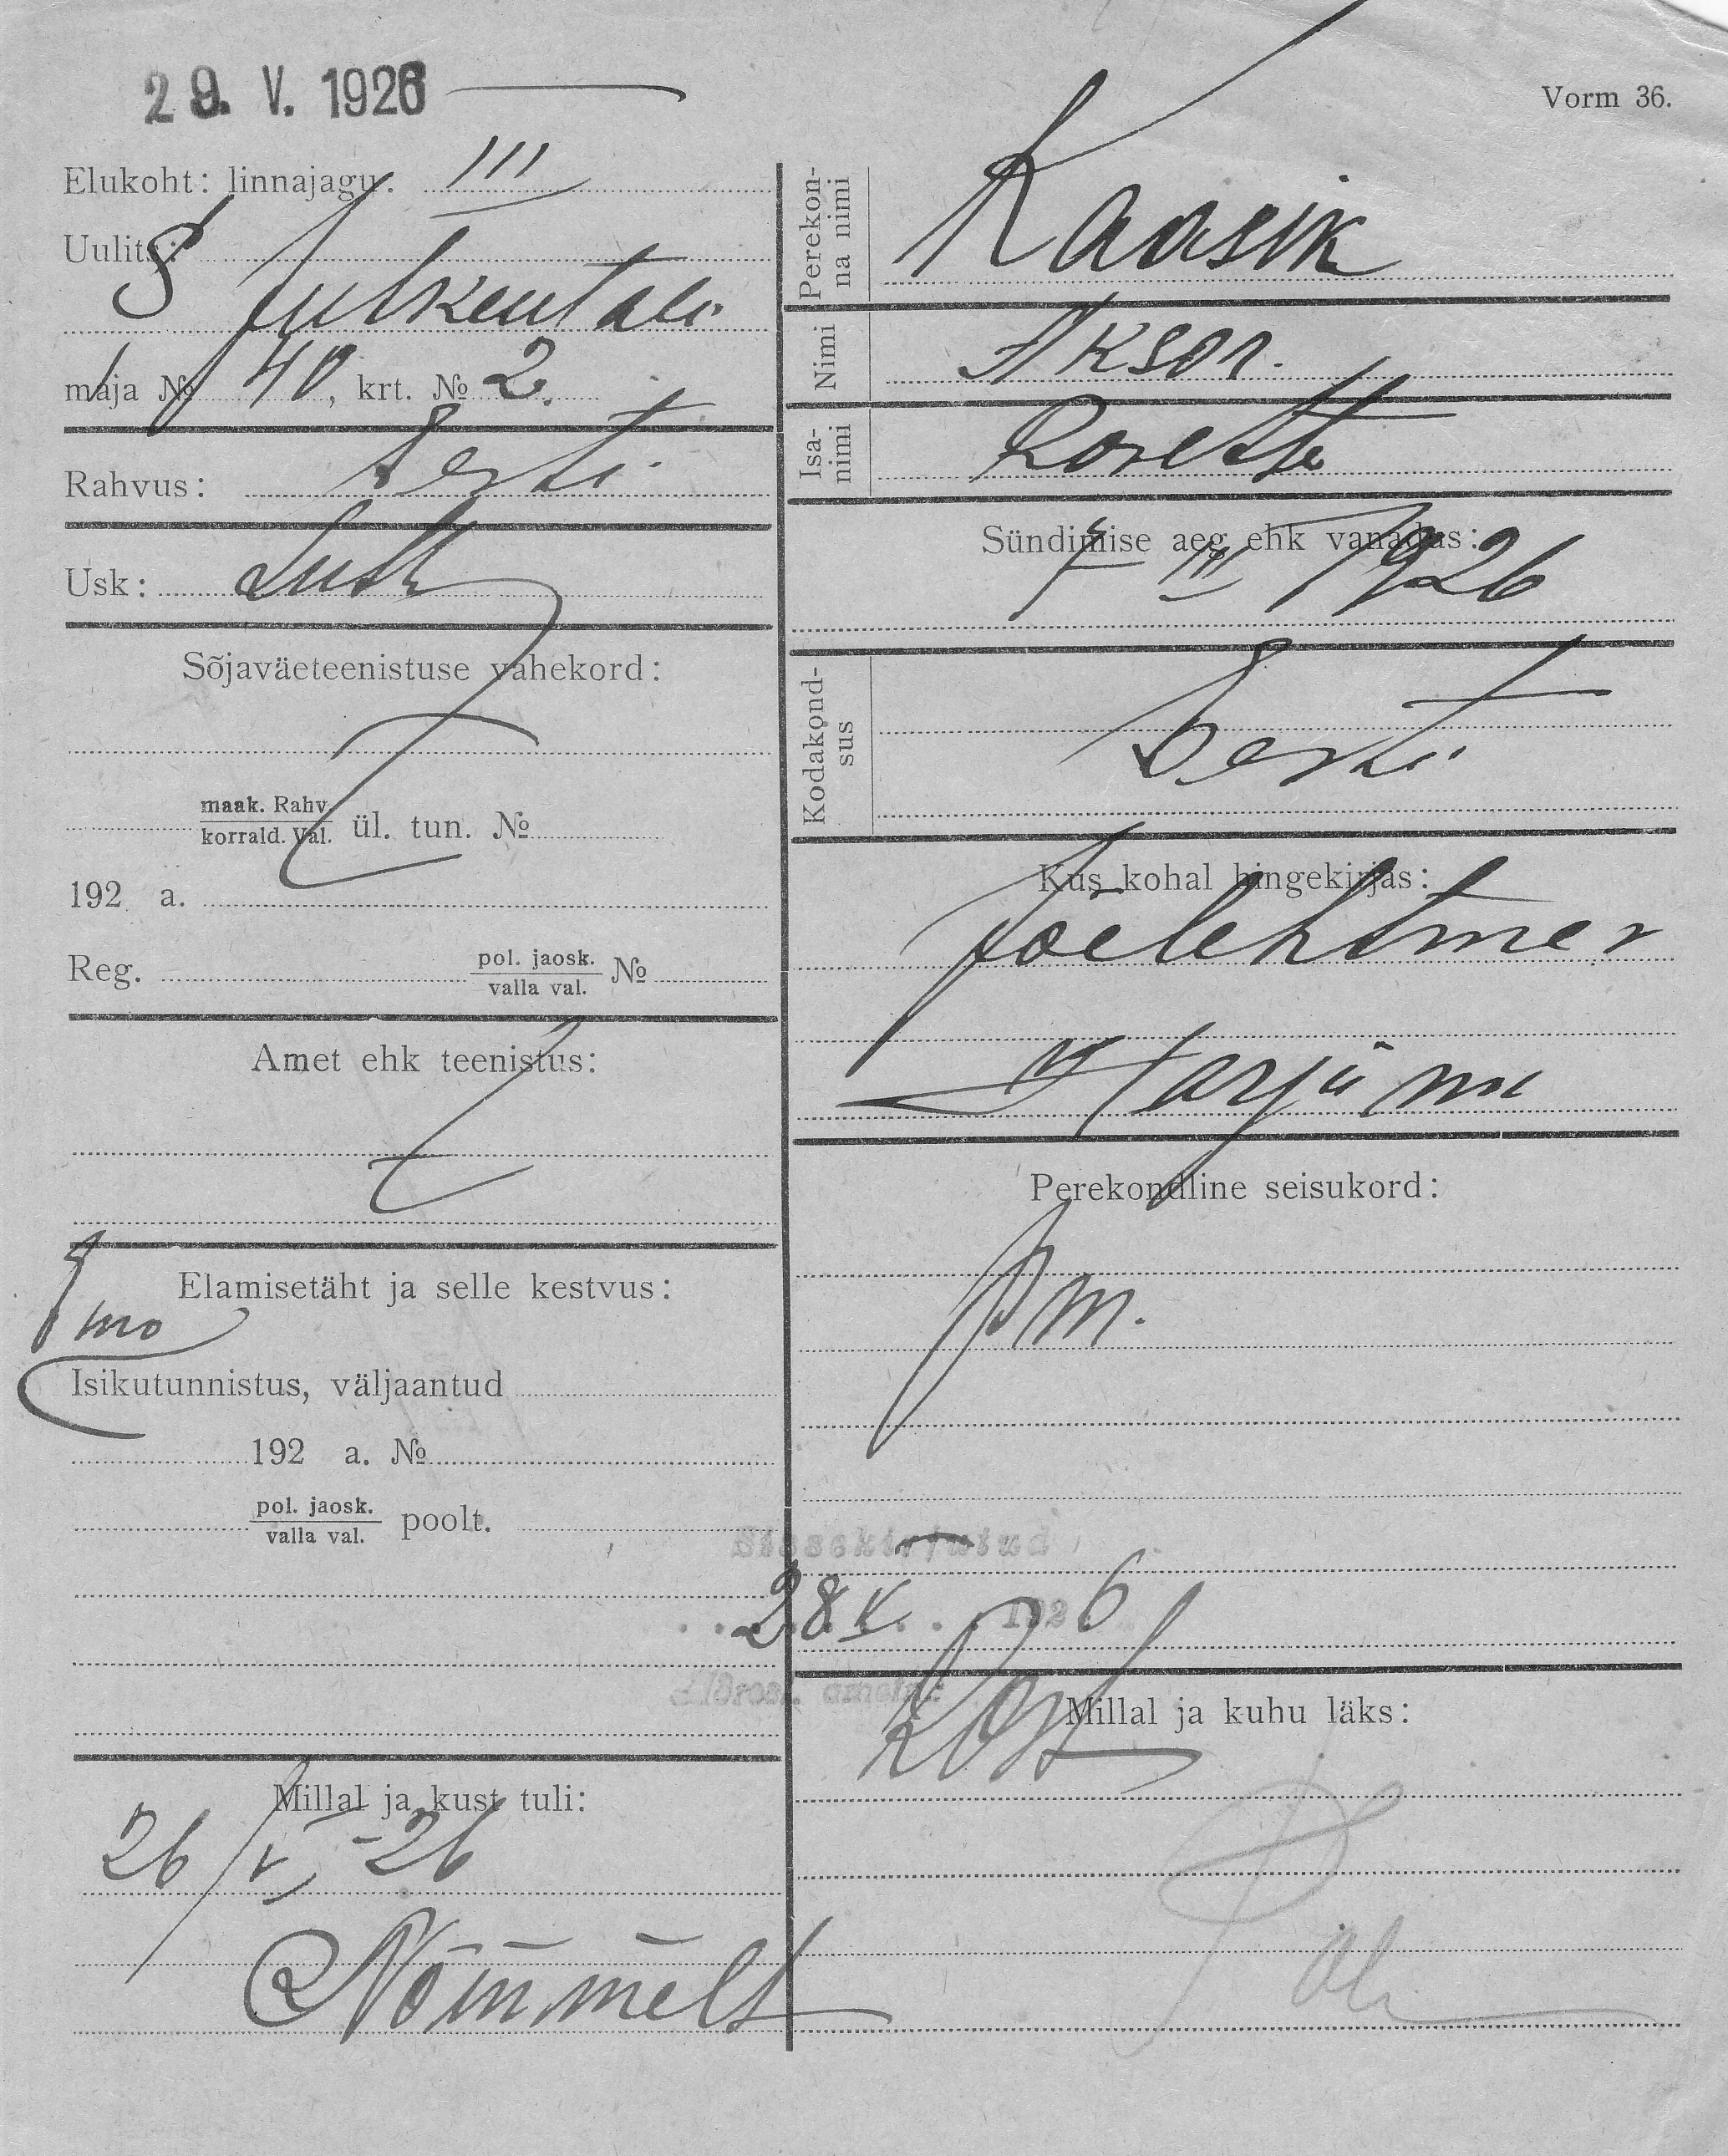 29. V. 1926
Vorm 36.
Elukoht: linnajagu. III
Uulits:
S Julkentali
maja № 40, krt. № 2.
Rahvus: Eesti
Usk: Luth
Sõjaväeteenistuse vahekord:
maak. Rahv.
korrald. Val. ül. tun. №
192 a.
Reg. pol. jaosk.
valla val. №
Amet ehk teenistus:
Elamisetäht ja selle kestvus:
Isikutunnistus, väljaantud
192 a. №
pol. jaosk.
valla val. poolt.
Millal ja kust tuli:
26/V -26
Nõmmelt
Perekon-
na nimi Kaasik
Nimi
Isa-
nimi
Sündimise aeg ehk vanadus:
III 1926
Kodakond-
sus Eesti
Kus kohal hingekirjas:
Jõelehtme v
Harju mk
Perekondline seisukord:
Sissekirjutud
28 V 1926
Millal ja kuhu läks: